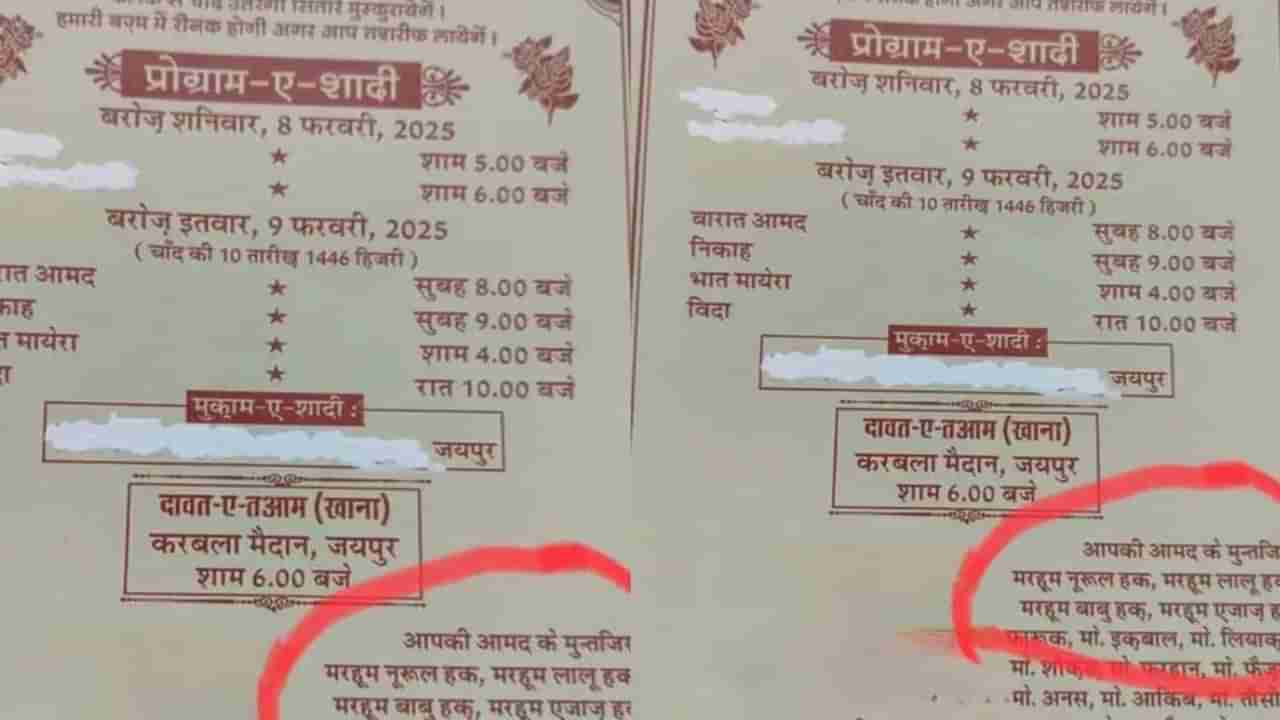 से चाँद उतरेगा सितारे मुस्कुरायेगें।
हमारी बज़्म में रौनक होगी अगर आप तशरीफ लायेगें।
प्रोग्राम-ए-शादी
बरोज़ शनिवार, 8 फरवरी, 2025
★ शाम 5.00 बजे
★ शाम 6.00 बजे
बरोज़ इतवार, 9 फरवरी, 2025
( चाँद की 10 तारीख़ 1446 हिजरी )
रात आमद ★ सुबह 8.00 बजे
काह ★ सुबह 9.00 बजे
त मायेरा ★ शाम 4.00 बजे
दा ★ रात 10.00 बजे
मुक़ाम-ए-शादी :
जयपुर
दावत-ए-तआम (खाना)
करबला मैदान, जयपुर
शाम 6.00 बजे
आपकी आमद के मुन्तजिर
मरहूम नूरूल हक, मरहूम लालू हक
मरहूम बाबु हक़, मरहूम एजाज़ ह
रौनक होगी अगर आप तशरीफ लायेगें।
प्रोग्राम-ए-शादी
बरोज़ शनिवार, 8 फरवरी, 2025
★ शाम 5.00 बजे
★ शाम 6.00 बजे
बरोज़ इतवार, 9 फरवरी, 2025
( चाँद की 10 तारीख़ 1446 हिजरी )
बारात आमद ★ सुबह 8.00 बजे
निकाह ★ सुबह 9.00 बजे
भात मायेरा ★ शाम 4.00 बजे
विदा ★ रात 10.00 बजे
मुक़ाम-ए-शादी :
जयपुर
दावत-ए-तआम (खाना)
करबला मैदान, जयपुर
शाम 6.00 बजे
आपकी आमद के मुन्तजि
मरहूम नूरूल हक, मरहूम लालू हक
मरहूम बाबु हक़, मरहूम एजाज़ ह
फारूक, मो. इक़बाल, मो. लियाक
मो. शौकत, मो. फरहान, मो. फैज
मो. अनस, मो. आकिब, मो. तौसी